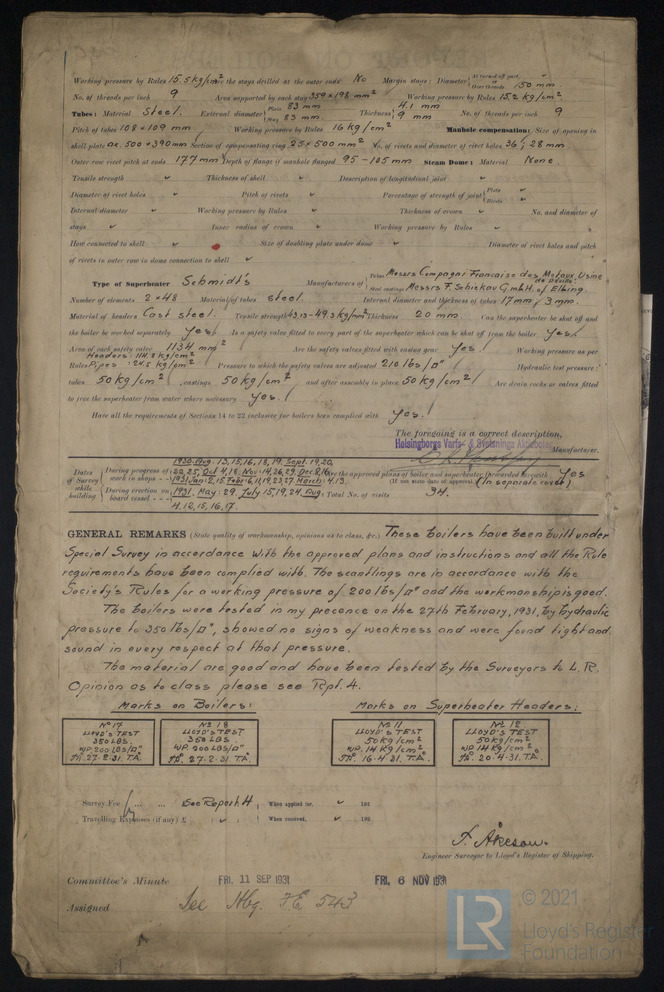 Working pressure by Rules 15.5 kg/cm² Are the stays drilled at the outer ends No Margin stays: Diameter { At turned off part, or Over threads 150 mm
No. of threads per inch 9 Area supported by each stay 359×198 mm² Working pressure by Rules 15.2 kg/cm²
Tubes: Material Steel. External diameter { Plain 83 mm Stay 83 mm Thickness { 4.1 mm 9 mm No. of threads per inch 9
Pitch of tubes 108×109 mm Working pressure by Rules 16 kg/cm² Manhole compensation: Size of opening in
shell plate ac. 500×390mm Section of compensating ring 25×500 mm² No. of rivets and diameter of rivet holes 36; 28 mm
Outer row rivet pitch at ends 177 mm Depth of flange if manhole flanged 95-105 mm Steam Dome: Material None.
Tensile strength Thickness of shell Description of longitudinal joint
Diameter of rivet holes Pitch of rivets Percentage of strength of joint { Plate Rivets
Internal diameter Working pressure by Rules Thickness of crown No. and diameter of
stays Inner radius of crown Working pressure by Rules
How connected to shell Size of doubling plate under dome Diameter of rivet holes and pitch
of rivets in outer row in dome connection to shell
Type of Superheater Schmidt's Manufacturers of { Tubes Messrs Compagni Francaise des Metaux, Usine de Deville. Steel castings Messrs F. Schickau G.m.b.H. of Elbing.
Number of elements 2×48 Material of tubes steel. Internal diameter and thickness of tubes 17mm, 3mm.
Material of headers Cast steel. Tensile strength 43.13-49.3 kg/mm² Thickness 20 mm. Can the superheater be shut off and
the boiler be worked separately Yes! Is a safety valve fitted to every part of the superheater which can be shut off from the boiler Yes!
Area of each safety valve 1134 mm² Are the safety valves fitted with easing gear Yes! Working pressure as per
Headers: 114.8 kg/cm²
Rules Pipes: 245 kg/cm² Pressure to which the safety valves are adjusted 210 lbs/□" Hydraulic test pressure:
tubes 50 kg/cm², castings 50 kg/cm² and after assembly in place 50 kg/cm²! Are drain cocks or valves fitted
to free the superheater from water where necessary Yes!
Have all the requirements of Sections 14 to 22 inclusive for boilers been complied with Yes!
The foregoing is a correct description,
Helsingborgs Varfs- & Svetsnings Aktiebolag Manufacturer.
Dates of Survey while building { During progress of work in shops - - 1930. Aug: 13, 15, 16, 18, 19. Sept. 19, 20, 25, Oct 4, 18 Nov: 14, 26, 29. Dec. 2, 16 1931 Jan: 2, 15 Febr: 6, 11, 19, 23, 27 March: 4, 13. Are the approved plans of boiler and superheater forwarded herewith Yes
(If not state date of approval.) (In separate cover)
During erection on board vessel - - - 1931. May: 29. July 15, 19, 24, Aug: 4, 12, 15, 16, 17. Total No. of visits 34.
GENERAL REMARKS (State quality of workmanship, opinions as to class, &c.) These boilers have been built under
Special Survey in accordance with the approved plans and instructions and all the Rule
requirements have been complied with. The scantlings are in accordance with the
Society's Rules for a working pressure of 200 lbs/□" and the workmanship is good.
The boilers were tested in my precence on the 27th February, 1931, by hydraulic
pressure to 350 lbs/□", showed no signs of weakness and were found tight and
sound in every respect at that pressure.
The material are good and have been tested by the Surveyors to L.R.
Opinion as to class please see Rpt. 4.
Marks on Boilers: Marks on Superheater Headers:
Nº 17 LLOYD'S TEST 350 LBS. WP. 200 LBS/□" 27.2.31. T.A.
Nº 18 LLOYD'S TEST 350 LBS WP 200 LBS/□" 27-2-31 T.A.
Nº 11 LLOYD'S TEST 50 kg/cm² WP. 14 KG/cm² 16-4-31. T.A.
Nº 12 LLOYD'S TEST 50 kg/cm² WP 14 KG/cm² 20-4-31. T.A.
Survey Fee ... ... See Report 4 When applied for, 193
Travelling Expenses (if any) £ : : When received, 193
F. Åkeson.
Engineer Surveyor to Lloyd's Register of Shipping.
Committee's Minute FRI. 11 SEP 1931 FRI. 6 NOV 1931
Assigned See Hbg. F.E. 543
LR © 2021 Lloyd's Register Foundation